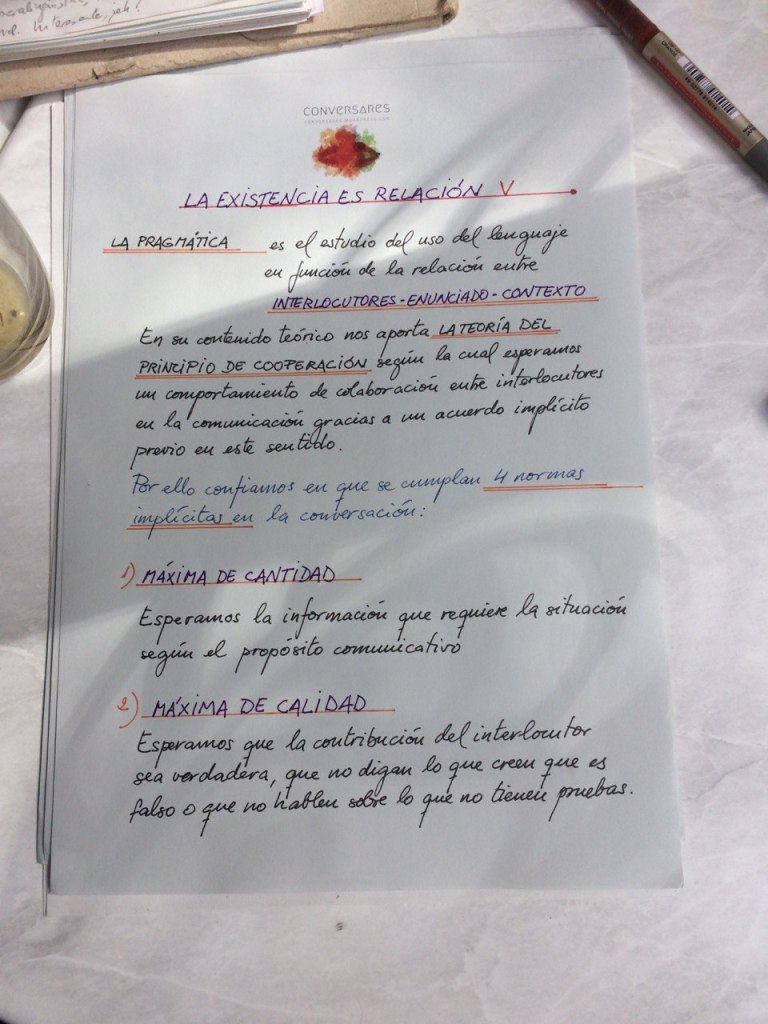 Interesante, ¿eh?
CONVERSARES
CONVERSARES.WORDPRESS.COM
LA EXISTENCIA ES RELACIÓN V
LA PRAGMÁTICA es el estudio del uso del lenguaje
en función de la relación entre
INTERLOCUTORES - ENUNCIADO - CONTEXTO
En su contenido teórico nos aporta LA TEORÍA DEL
PRINCIPIO DE COOPERACIÓN según la cual esperamos
un comportamiento de colaboración entre interlocutores
en la comunicación gracias a un acuerdo implícito
previo en este sentido.
Por ello confiamos en que se cumplan 4 normas
implícitas en la conversación:
1) MÁXIMA DE CANTIDAD
Esperamos la información que requiere la situación
según el propósito comunicativo
2) MÁXIMA DE CALIDAD
Esperamos que la contribución del interlocutor
sea verdadera, que no digan lo que creen que es
falso o que no hablen sobre lo que no tienen pruebas.